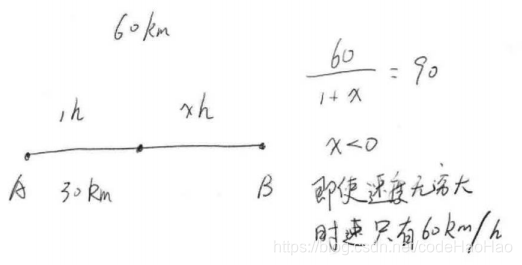 60km
1h xh
A 30km B
60/(1+x) = 90
x<0
即使速度无穷大
时速只有60km/h
https://blog.csdn.net/codeHaoHao